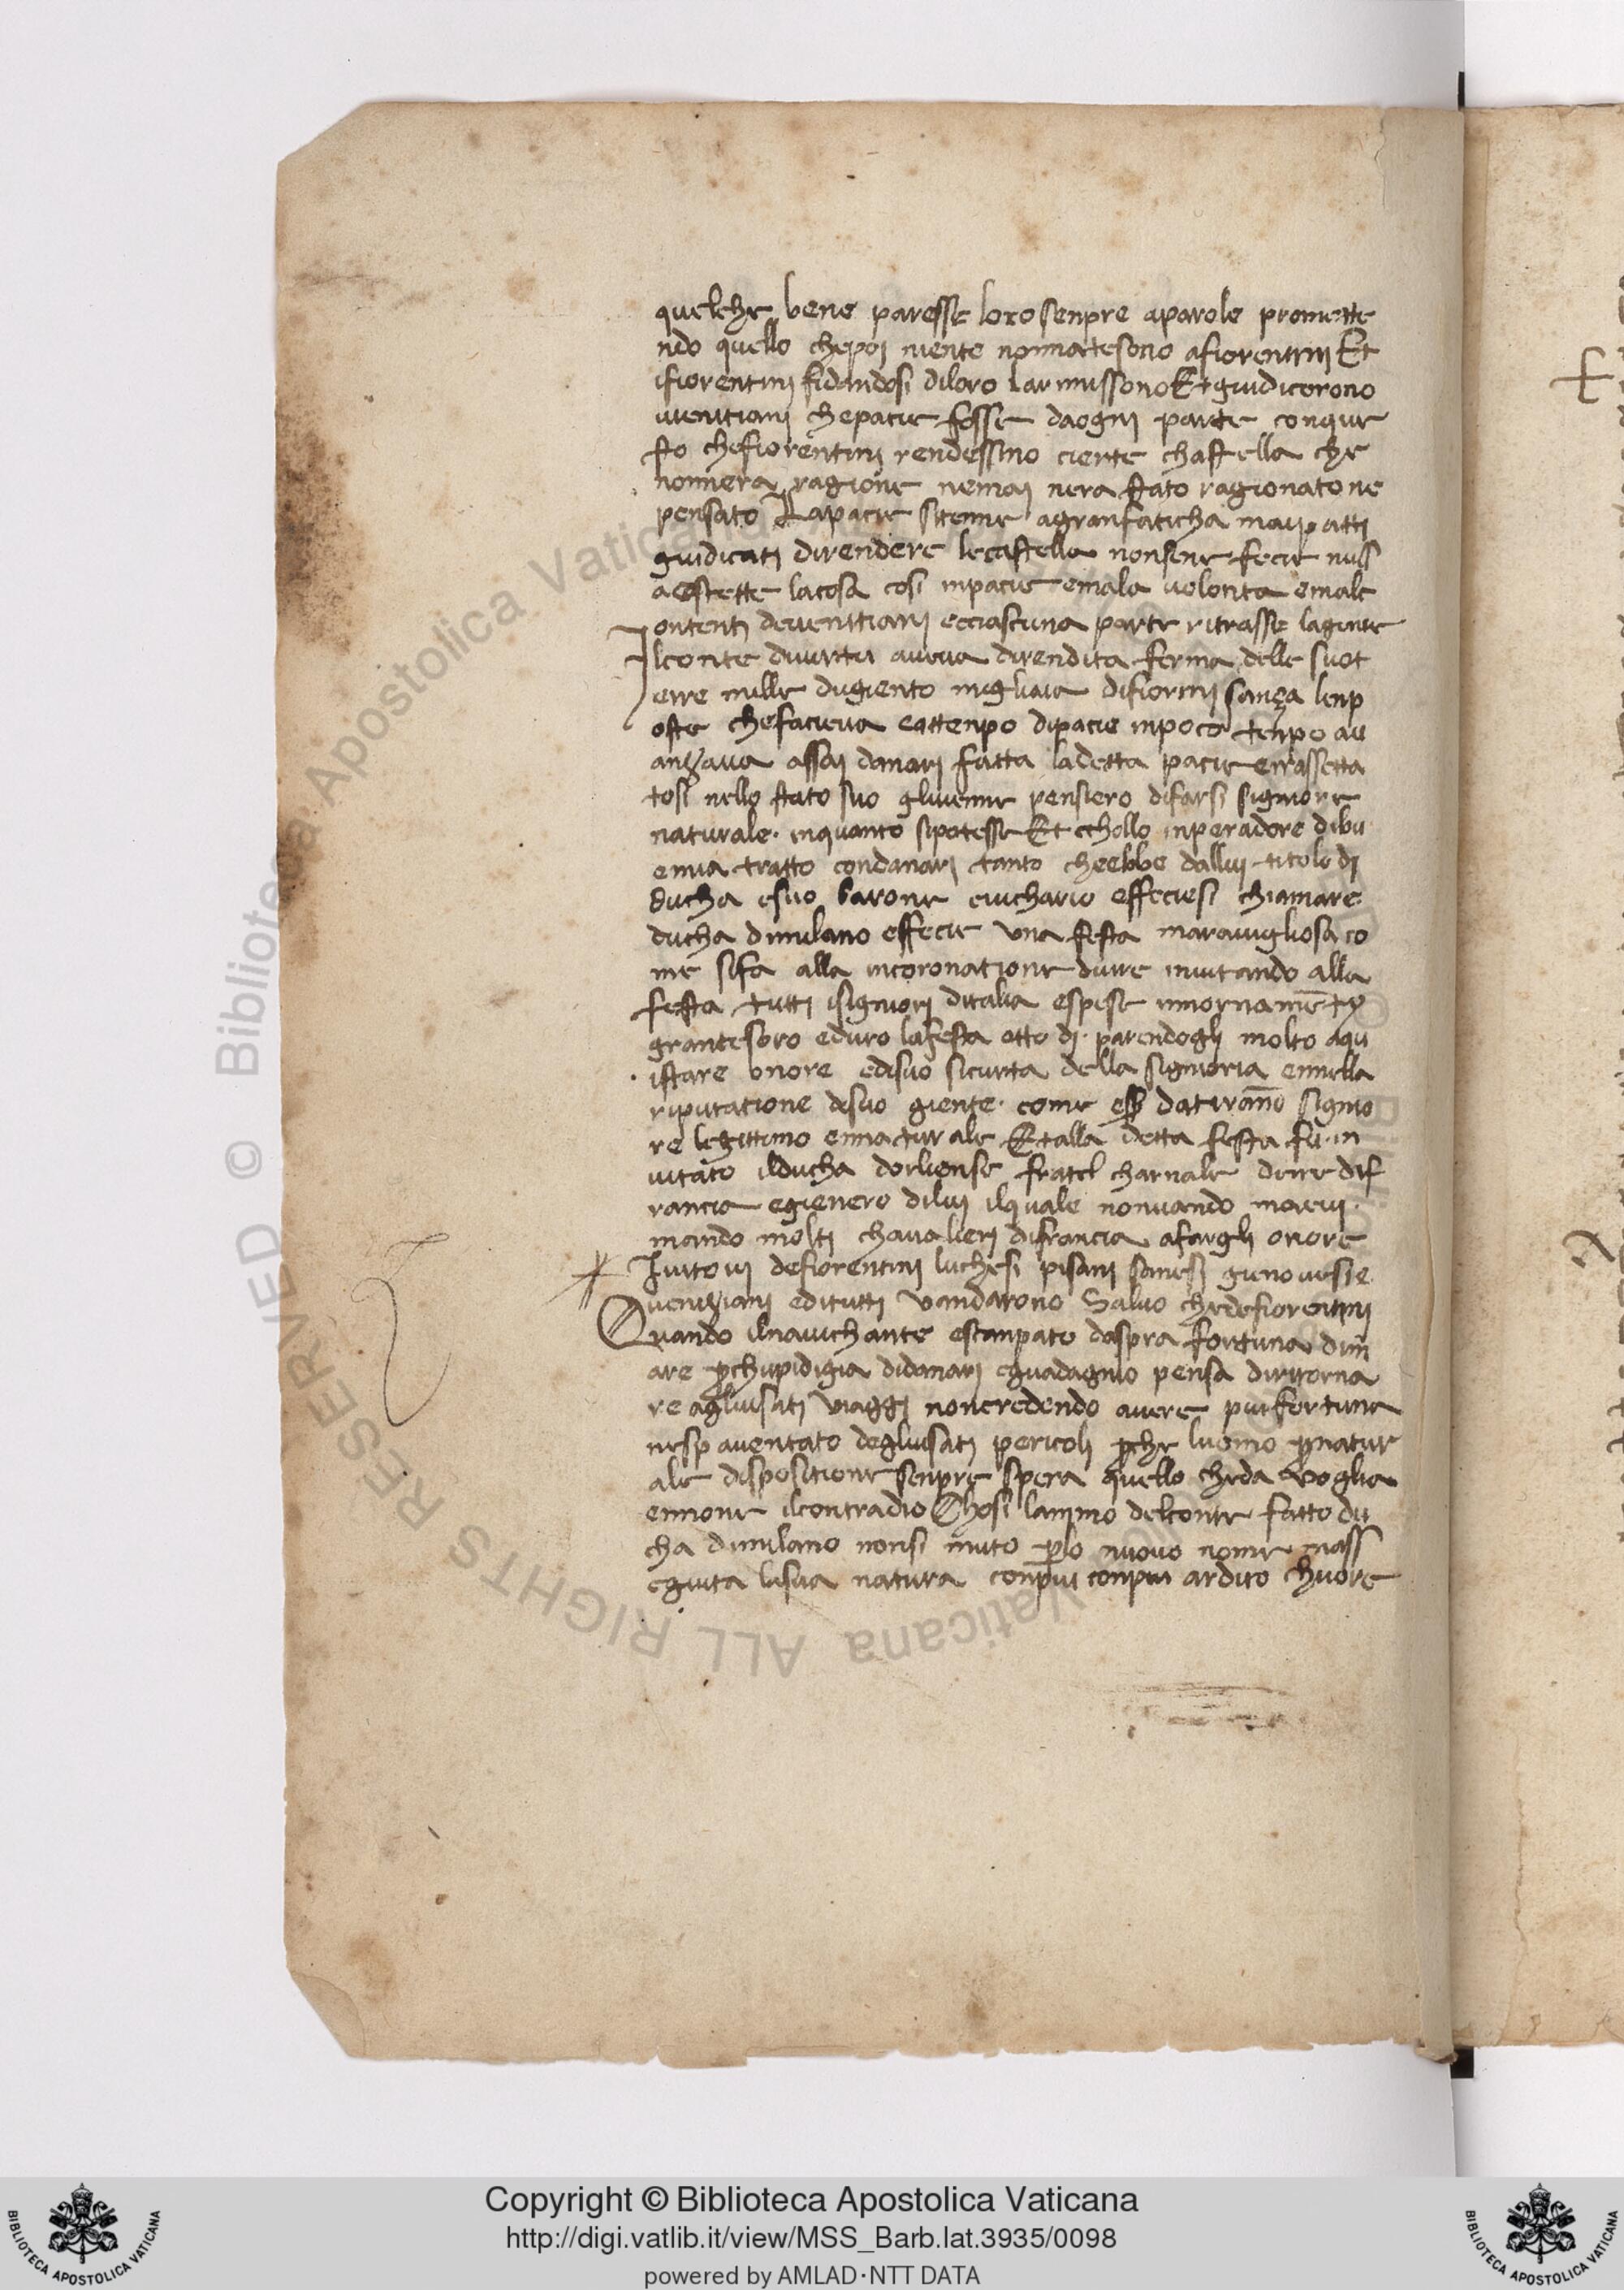 quelche bene paresse loro senpre aparole promette
ndo quello chepoi niente nonnatesono afiorentini Et
ifiorentini fidandosi diloro larimissono Et giudicorono
iuenitiani chepacie fosse daogni parte conque
sto chefiorentini rendessino ciente chastella che
nonnera ragione nemai nera stato ragionato ne
pensato Lapacie sitenne agranfaticha maip atti
giudicati direndere lecastella nonsene fecie null
a estette lacosa cosi inpacie emala uolonta emalc
ontenti deuenitiani ecciascuna parte ritrasse lagiente
Ilconte diuirtu aueua direndita ferma delle suet
erre mille dugiento migliaia difiorini sança lenp
oste chefacieua eattenpo dipacie inpoco tenpo au
ançaua assai danari fatta ladetta pacie errassetta
tosi nello stato suo gliuenne pensiero difarsi signiore
naturale inquanto sipotesse Et chollo inperadore dibu
emia tratto condanari tanto cheebbe dallui titolo di
ducha esuo barone euichario effeciesi chiamare
ducha dimilano effecie una festa marauigliosa co
me sifa alla incoronatione dire inuitando alla
festa tutti isigniori ditalia espese innorname͞ti
grantesoro eduro lafesta otto di parendogli molto aqu
istare onore edisuo sicurta della signioria ennella
riputatione disuo giente come ess datira͞no signio
re legittimo ennaturale Et alla detta festa fu in
uitato ilducha dorliense fratel charnale dere dif
rancia egienero dilui ilquale nonuando maeui
mando molti chaualieri difrancia afargli onore
Inuitoui defiorentini luchesi pisani sanesi gienouesi e
ueniçiani editutti uandarono Saluo chedefiorentini
Quando ilnauichante escanpato daspra fortuna dim
are pchupidigia didanari eguadagnio pensa diritorna
re agliusati uiaggi noncredendo auere piu fortuna
nesp auentato degliusati pericoli pche luomo pnatur
ale dispositione senpre spera quello cheda uoglia
ennone ilcontradio Chosi lanimo delconte fatto du
cha dimilano nonsi muto plo nuouo nome mass
eguita lasua natura conpiu conpiu ardito chuore
Copyright © Biblioteca Apostolica Vaticana
http://digi.vatlib.it/view/MSS_Barb.lat.3935/0098
powered by AMLAD·NTT DATA
BIBLIOTECA APOSTOLICA VATICANA
BIBLIOTECA APOSTOLICA VATICANA
© Biblioteca Apostolica Vaticana ALL RIGHTS RESERVED